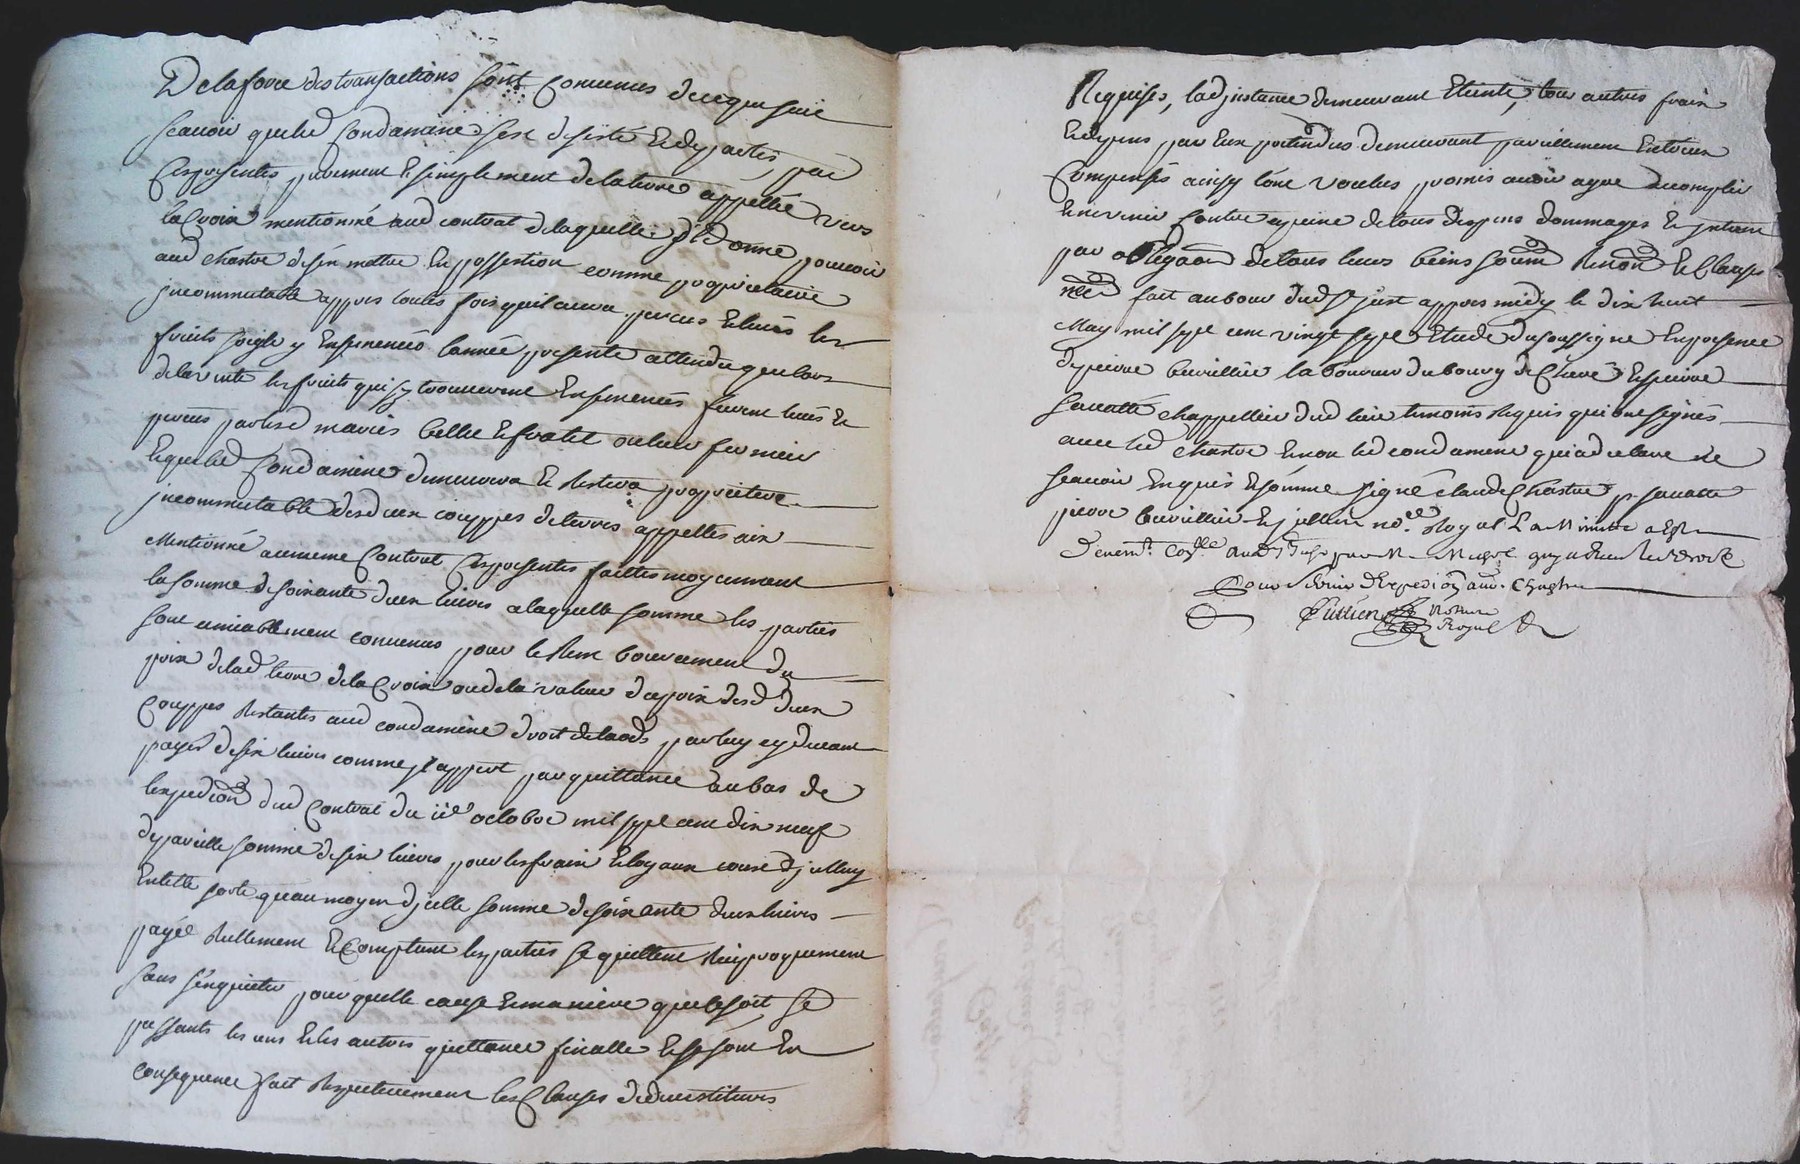 De la force des transactions sont convenus de ce que suit
scauoir que led Condamine sest desisté et departis par
ces presentes purement et simplement de la terre appellée vers
la Croix mentionné aud contrat de laquelle jl donne pouuoir
aud Chastre desen mettre en possession comme proprietaire
jncommutable appres toutes fois quil aura percus et leués les
fruits soigle y ensemencés lannée presente attendu que lors
de la vente les fruits qui sy trouuerent ensemencés furent leués et
percus par lesd mariés Cellie et fratel ou leur fermier
et que led Condamine demeurera et restera proprietere
jncommutable desd deux couppes de terres appellés aix
Mentionné au meme Contrat Ces presentes faittes moyennant
la somme de soixante deux liures a laquelle somme les parties
sont amiablement conuenus pour le remboursement du
prix de lad terre de la Croix ou de la valeur du prix desd deux
Couppes restantes aud condamine droit de laods par luy cy deuant
payés de six liures comme jl appert par quittance au bas de
lexpedion dud Contrat du iie octobre mil sept cent dix neuf
de pareille somme de six liures pour les fraix et loyaux couts djcelluy
En telle sorte quau moyen djcelle somme de soixante deux liures
payée rellement et Comptant les parties se quittent reciproquement
sans senquieter pour quelle cause et maniere que ce soit se
passants les uns et les autres quittance finalle et se sont en
consequence fait respectiuement les Clauses de deuestitures
Requises, lad jnstance demeurant eteinte, tous autres fraix
et depens par eux pretendus demeurant pareillement entreux
Compensés ainsy lont voulus promis auoir agré accomplir
et ny venir Contre a peine de tous depens dommages et jnterets
par obligaon de tous leurs biens soumon renon et Clauses
necs fait au bour dud St just appres midy le dix huit
May mil sept cent vingt sept Etude du soussigné en presence
de pierre Cuuillier laboureur du bourg de Cheué et pierre
sauatte chappellier dud lieu temoins requis qui ont signés
auec led Chastre et non led condamine qui a declaré ne
scauoir enquis et sommé signé Claude Chastre p. sauatte
pierre Cuuillier et jullien nore Royal La Minutte a esté
Pour seruir dExpedion aud. Chastre
Jullien Notaire
Royal